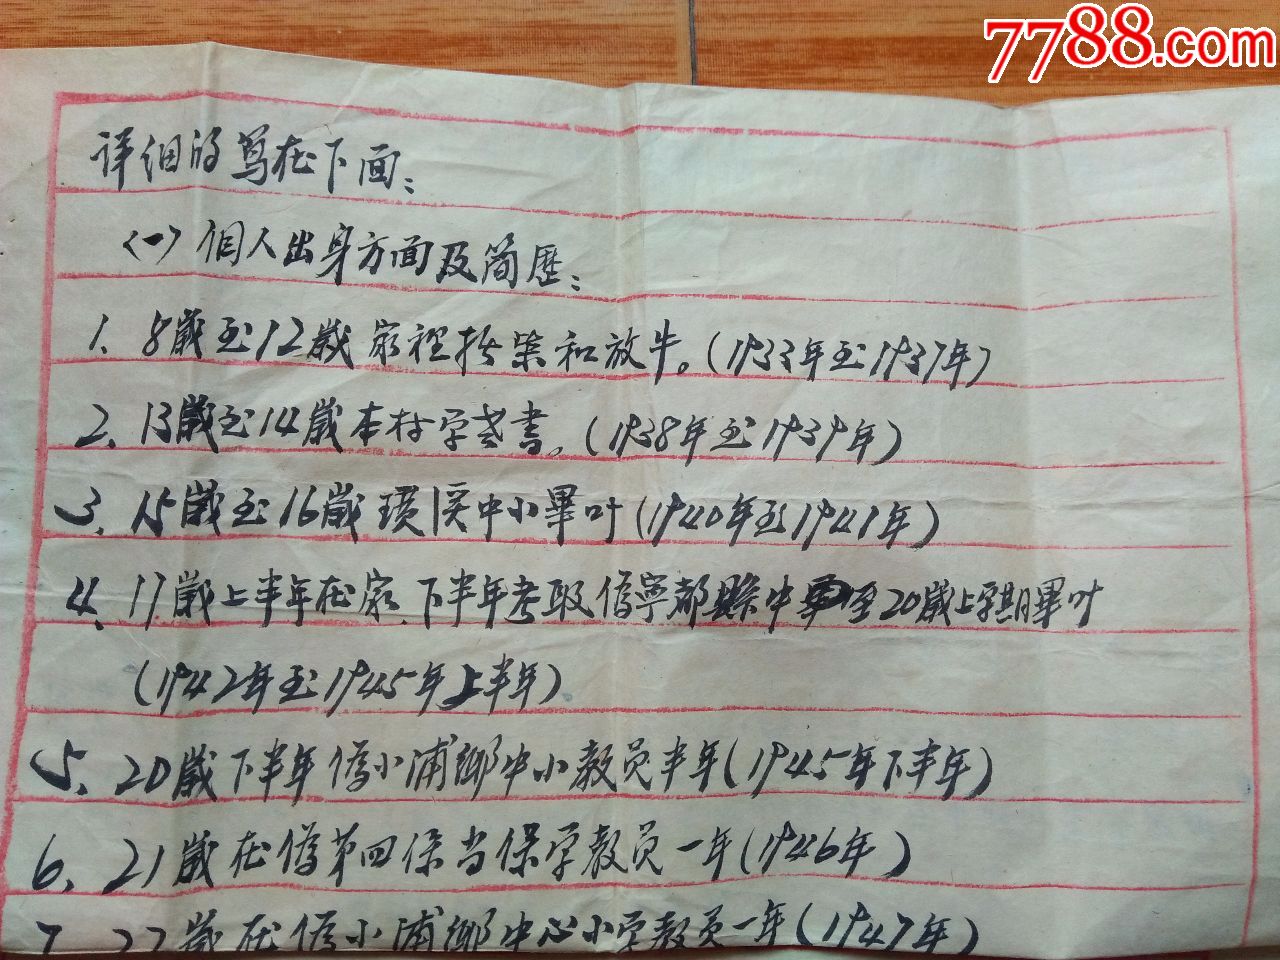 7788.com
详细的写在下面：
(一)個人出身方面及简歷：
1. 8歲至12歲家裡拾柴和放牛。(1933年至1937年)
2. 13歲至14歲本村学老書。(1938年至1939年)
3. 15歲至16歲璜溪中小畢叶(1940年至1941年)
4. 17歲上半年在家.下半年考取偽寧都縣中至20歲上学期畢叶
(1942年至1945年上半年)
5. 20歲下半年偽小浦鄉中小教员半年(1945年下半年)
6. 21歲在偽第四保当保学教员一年(1946年)
7. 22歲在偽小浦鄉中心小学教员一年(1947年)